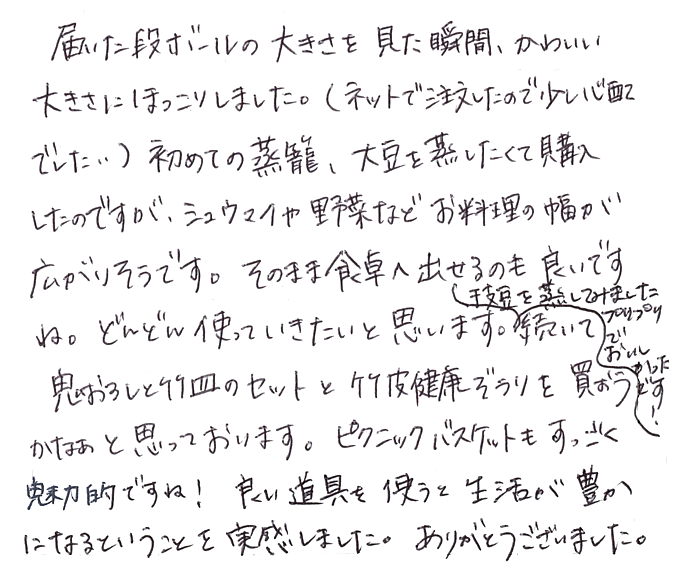 届いた段ボールの大きさを見た瞬間、かわいい
大きさにほっこりしました。(ネットで注文したので少し心配
でした‥)初めての蒸籠、大豆を蒸したくて購入
したのですが、シュウマイや野菜などお料理の幅が
広がりそうです。そのまま食卓へ出せるのも良いです
ね。どんどん使っていきたいと思います。続いて
枝豆を蒸してみました
プリプリ
で
おいし
かった
です!
鬼おろしと竹皿のセットと竹皮健康ぞうりを買おう
かなぁと思っております。ピクニックバスケットもすっごく
魅力的ですね!良い道具を使うと生活が豊か
になるということを実感しました。ありがとうございました。